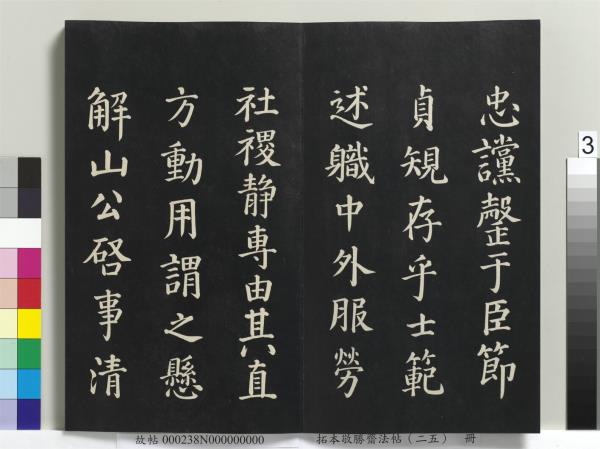 忠讜罄于臣節
貞規存乎士範
述職中外服勞
社稷靜專由其直
方動用謂之懸
解山公啓事清
3
故帖 000238N000000000 拓本敬勝齋法帖（二五） 冊